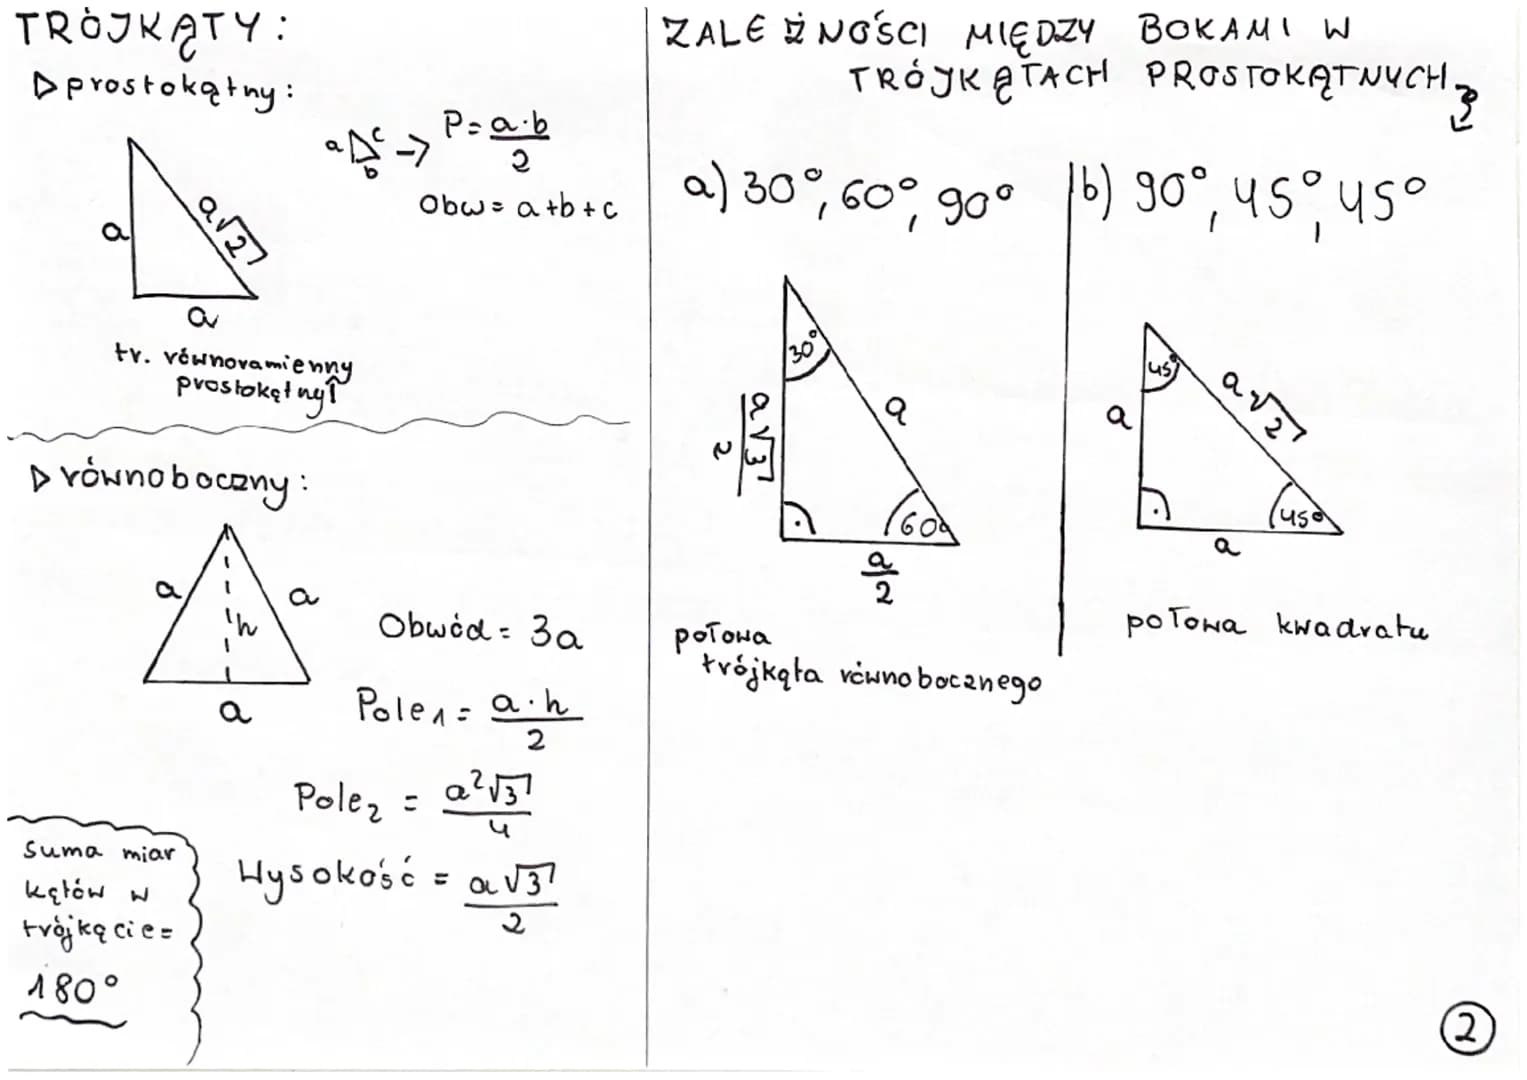 TRÓJKĄTY:
▷ prostokątny:
a
a√2
a
a
c
b
→
P = a·b
2
Obw = a+b+c
tr. równoramienny
prostokątny↑
▷ równoboczny:
a
a
h
a
Obwód = 3a
Pole₁ = a·h
2
Pole₂ = a²√3
4
Wysokość = a√3
2
suma miar
kątów w
trójkącie =
180°
ZALEŻNOŚCI MIĘDZY BOKAMI W
TRÓJKĄTACH PROSTOKĄTNYCH
a) 30°, 60°, 90°
30°
a√3
2
a
60°
a
2
połowa
trójkąta równobocznego
b) 90°, 45°, 45°
45°
a
a√2
45°
a
połowa kwadratu
2